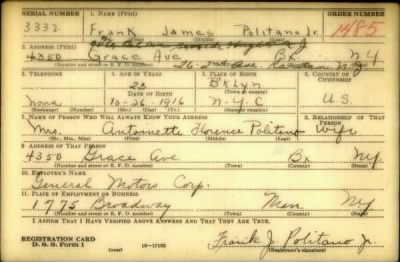 SERIAL NUMBER 1. NAME (Print) ORDER NUMBER
3332 Frank James Politano Jr. 1485
(First) (Middle) (Last)
2. ADDRESS (Print)
4350 Grace Ave Bx NY
26-2nd Ave N.J.
(Number and street or R. F. D. number) (Town) (County) (State)
3. TELEPHONE 4. AGE IN YEARS 5. PLACE OF BIRTH 6. COUNTRY OF CITIZENSHIP
23 BKlyn
DATE OF BIRTH (Town or county)
None 10-26-1916 N-Y-C U.S.
(Mo.) (Day) (Yr.) (State or country)
7. NAME OF PERSON WHO WILL ALWAYS KNOW YOUR ADDRESS 8. RELATIONSHIP OF THAT PERSON
Mrs. Antoinette Florence Politano Wife
(Mr., Mrs., Miss) (First) (Middle) (Last)
9. ADDRESS OF THAT PERSON
4350 Grace Ave Bx NY.
(Number and street or R. F. D. number) (Town) (County) (State)
10. EMPLOYER'S NAME
General Motors Corp.
11. PLACE OF EMPLOYMENT OR BUSINESS
1775 Broadway Man. NY
(Number and street or R. F. D. number) (Town) (County) (State)
I AFFIRM THAT I HAVE VERIFIED ABOVE ANSWERS AND THAT THEY ARE TRUE.
REGISTRATION CARD
D. S. S. FORM 1 (over) 16-17105 Frank J. Politano Jr.
(Registrant's signature)